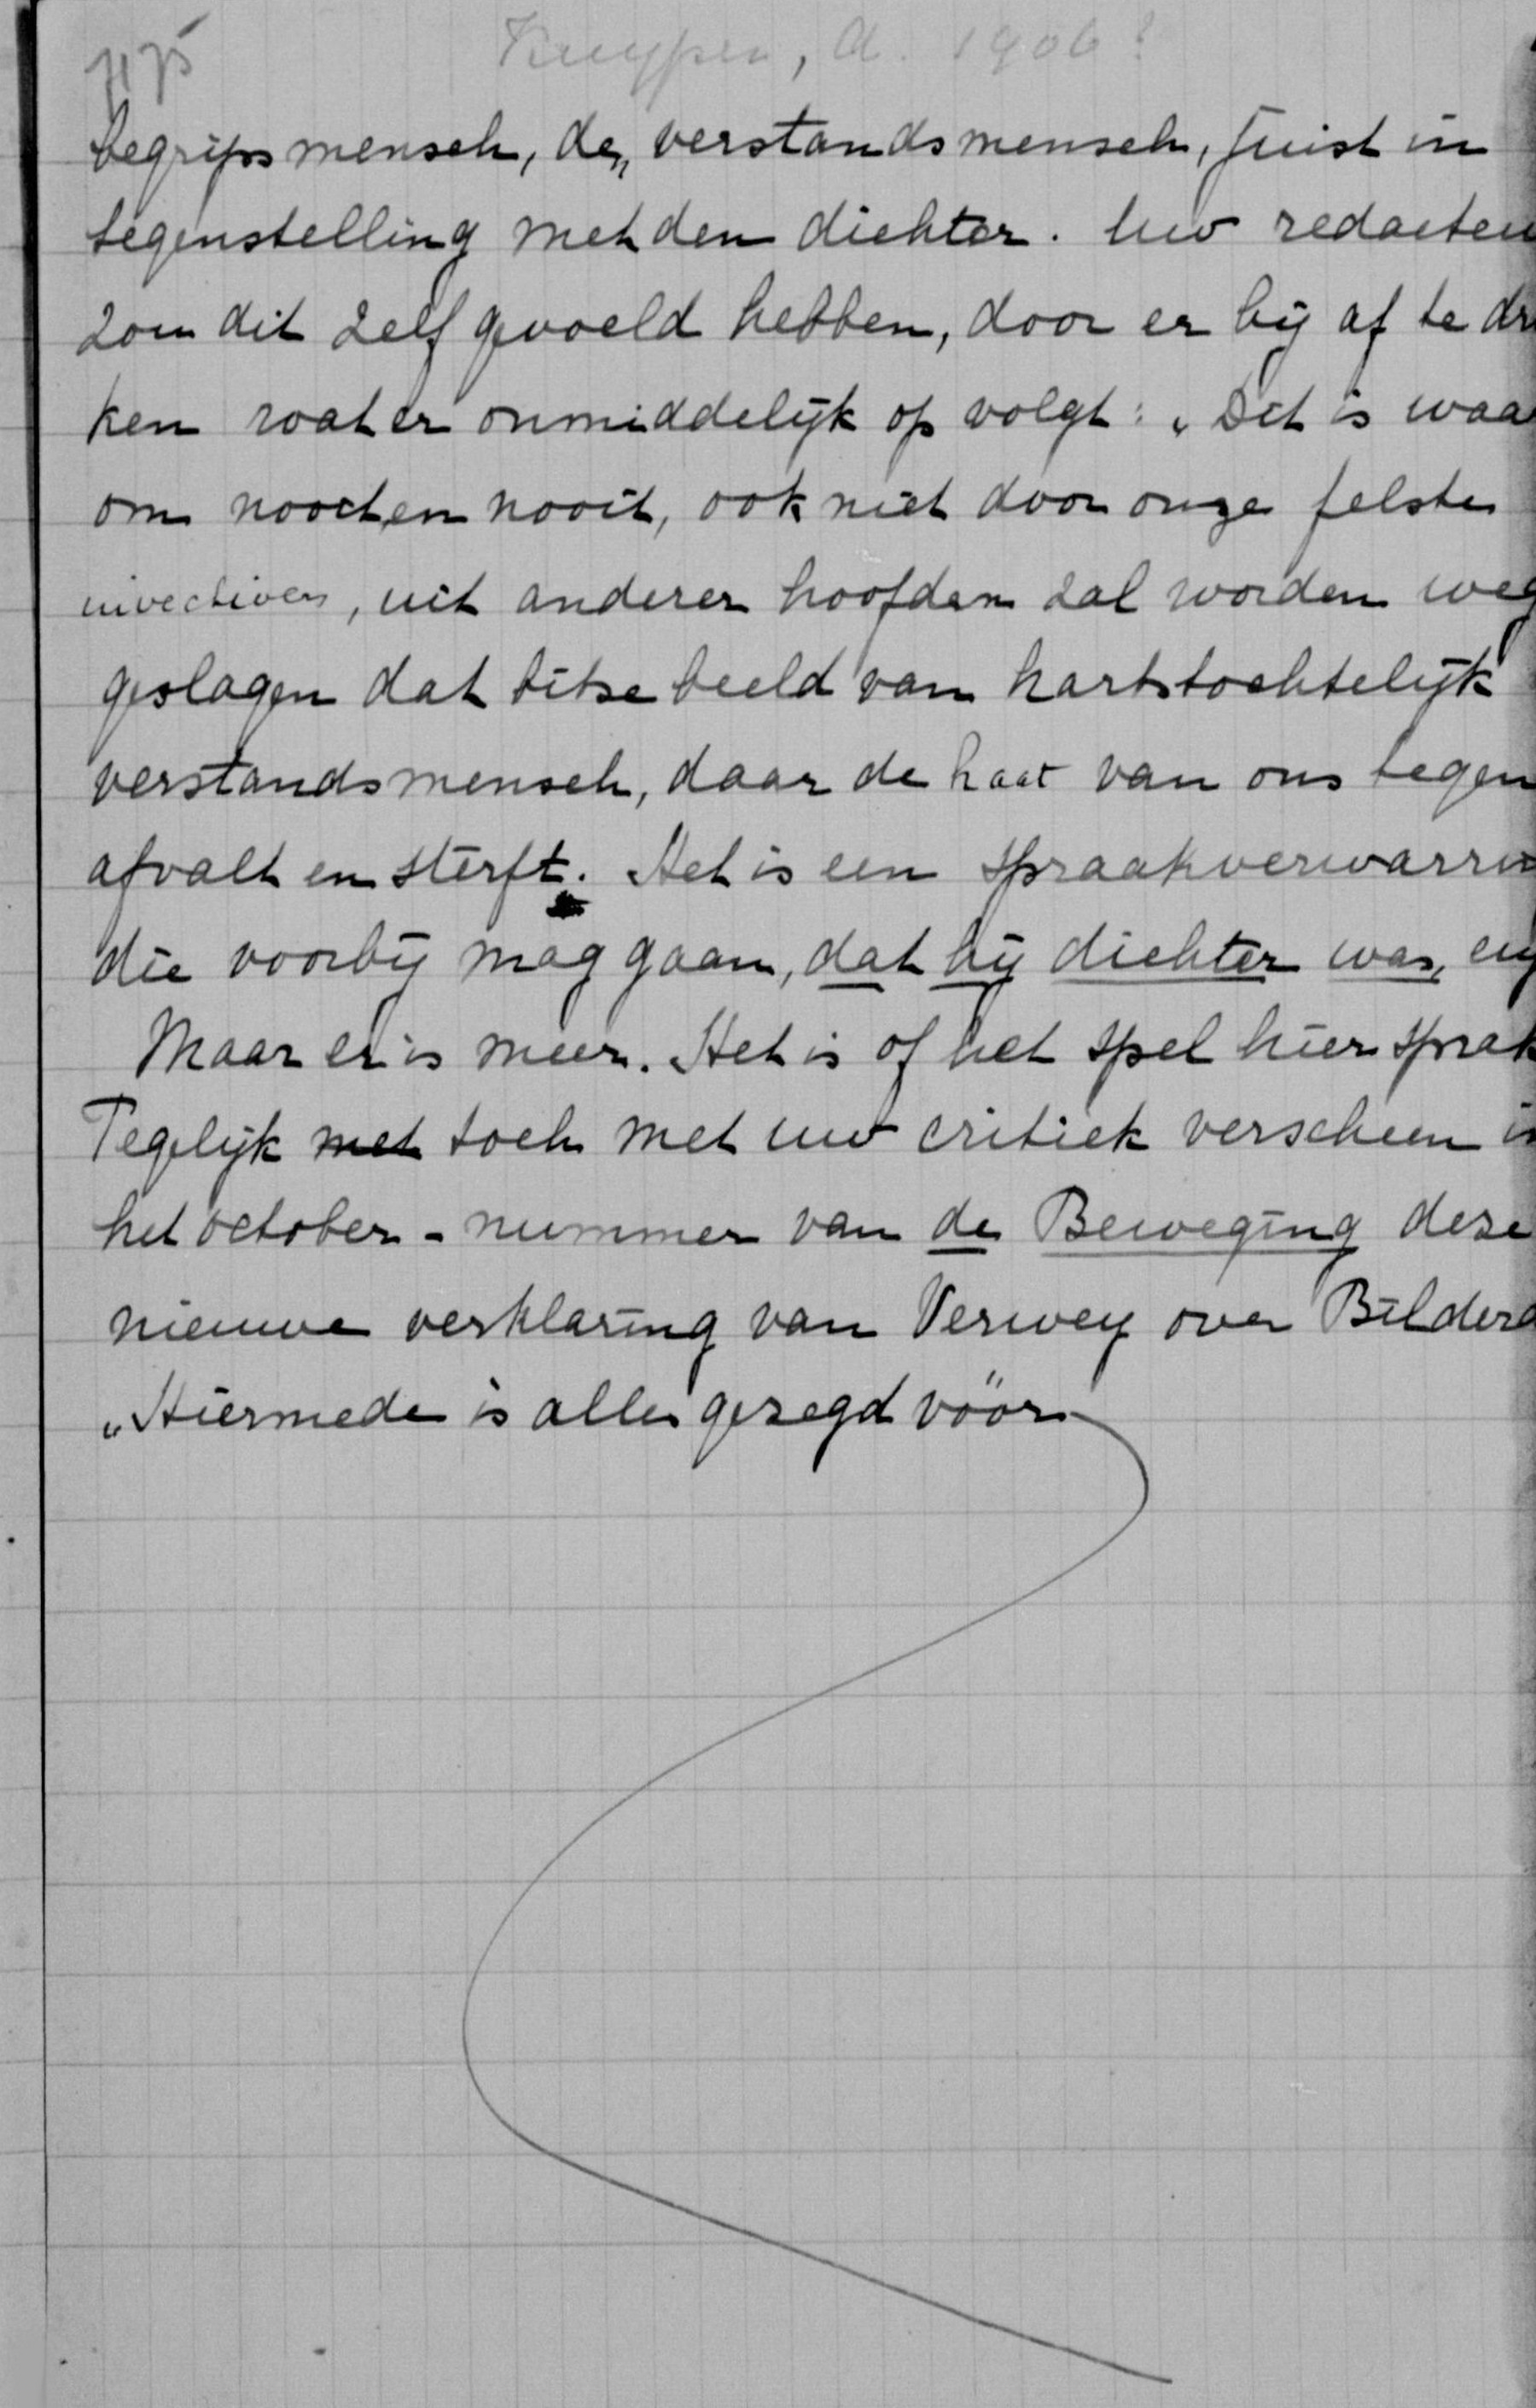 Kuyper, A. 1906?
begripsmensch, de verstandsmensch, juist in
tegenstelling met den dichter. Uw redacteu
zou dit zelf gevoeld hebben, door er bij af te dr
ken wat er onmiddelijk op volgt: „Dit is waa
om nooit en nooit, ook niet door onze felste
invectiven, uit anderer hoofden zal worden weg
geslagen dat bitse beeld van hartstochtelijk
verstandsmensch, daar de haat van ons tegen
afvalt en sterft. Het is een spraakverwarrin
die voorbij mag gaan, dat hij dichter was, en
Maar er is meer. Het is of het spel hier sprak
Tegelijk met toch met uw critiek verscheen in
het october - nummer van de Beweging deze
nieuwe verklaring van Verwey over Bilderd
„Hiermede is alles gezegd vóór